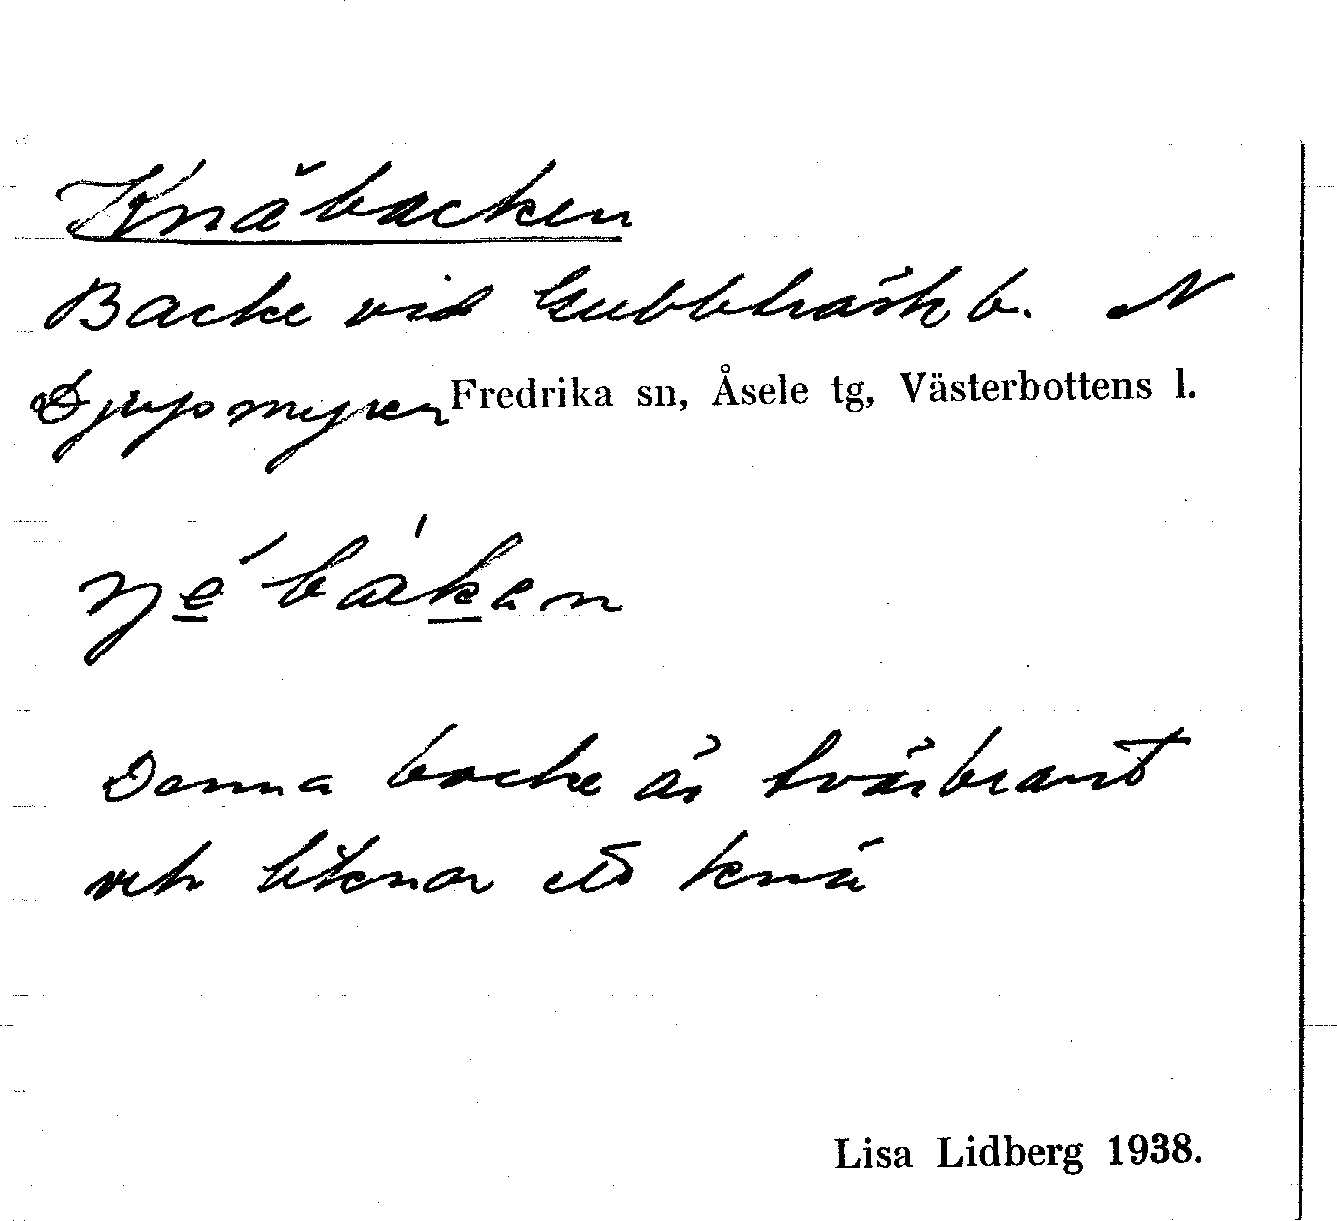 Knäbacken
Backe vid Gubbträsk b. N
Djupmyren Fredrika sn, Åsele tg, Västerbottens l.
Denna backe är tvärbrant
och liknar ett knä
Lisa Lidberg 1938.